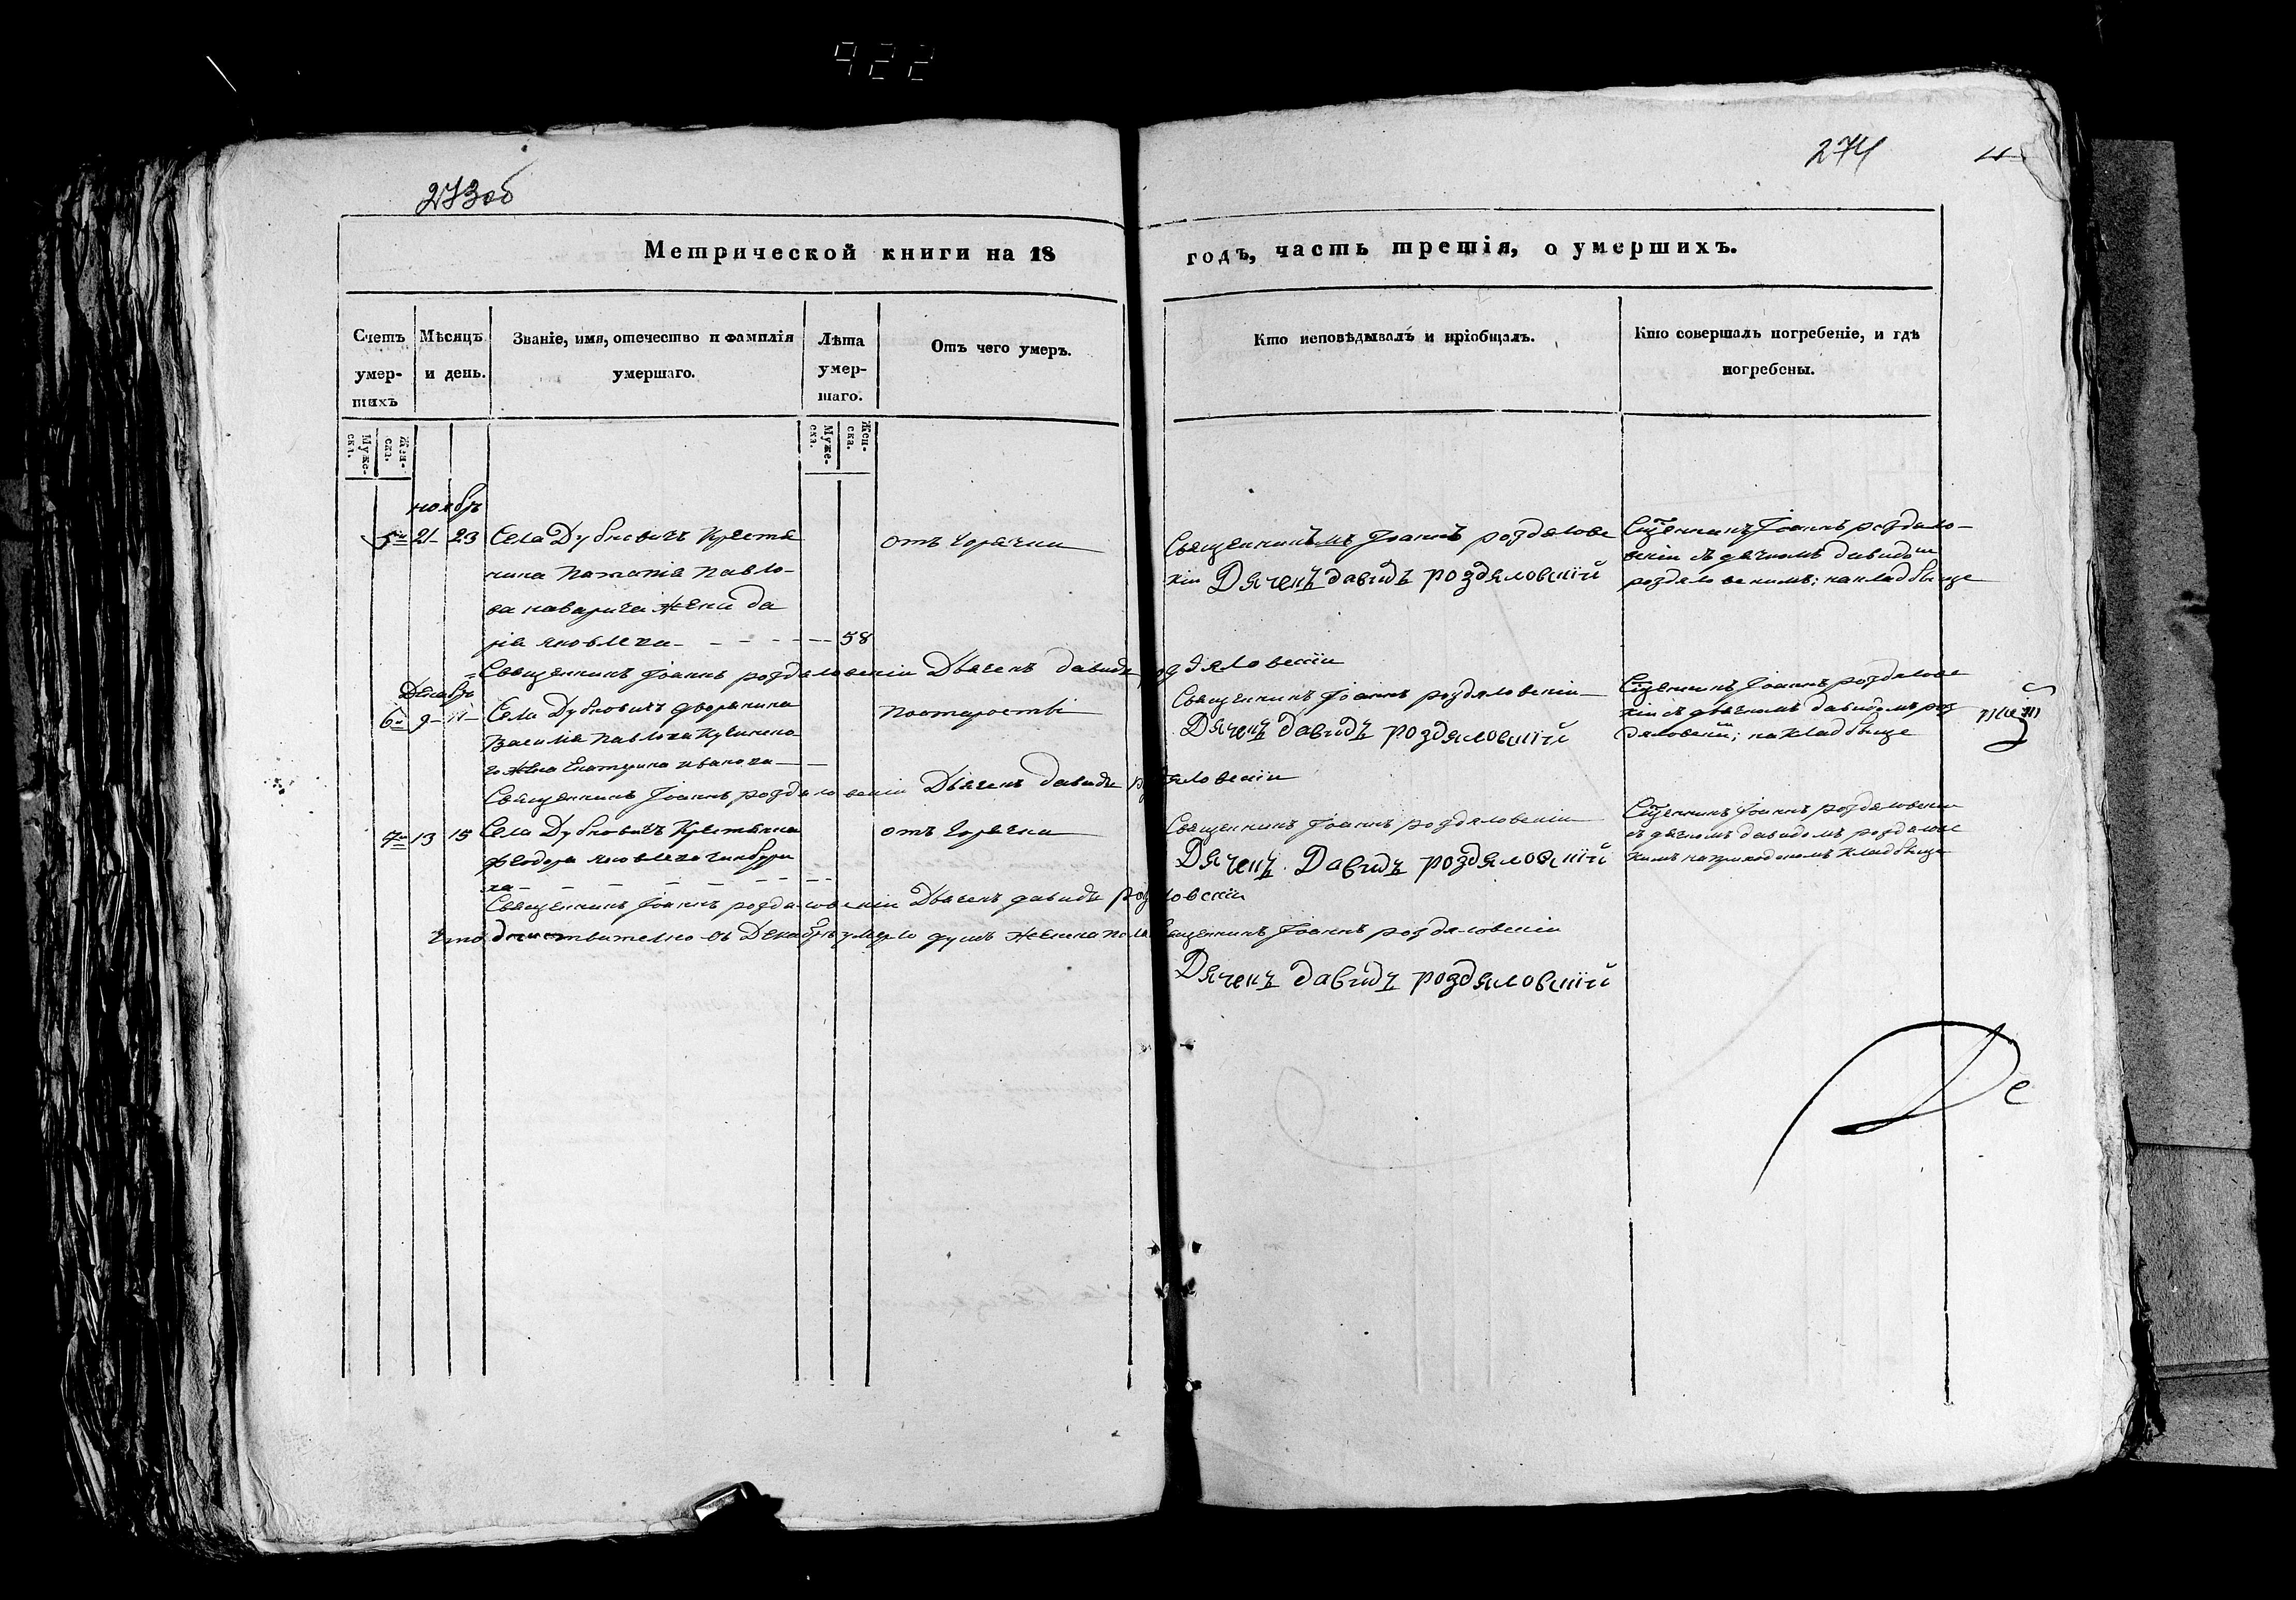 922
273об
274
Метрической книги на 18
годъ, часть третія, о умершихъ.
Счетъ умер-шихъ
Мѣсяцъ и день.
Званіе, имя, отечество и фамилія умершаго.
Лѣта умер-шаго.
Отъ чего умеръ.
Кто исповѣдывалъ и пріобщалъ.
Кто совершалъ погребеніе, и гдѣ погребены.
Муже-ска.
Жен-ска.
Муже-ска.
Жен-ска.
ноябрь
5 21 23 Села Дубновичъ Крестя
нина Потапія Павло-
ва жена да
рія яковлева 58
отъ Горячки
Священникъ Іоаннъ роздялове
кіи Дяченъ давидъ роздяловскій
Сщенникъ Іоаннъ роздяло-
вскіи съ дячкомъ давидом
роздяловскимъ; на кладбище
Священникъ Іоаннъ роздяловскіи Дьяченъ давидъ роздяловскіи
Декабрь
6 9 11 Села Дубновичъ дворянина
Василія Павлова
го жена Екатерина иванова
по старости
Священникъ Іоаннъ роздяловскіи
Дяченъ давидъ роздяловскій
Сщенникъ Іоаннъ роздялове
кіи съ дьячкомъ давидомъ роз
дяловскіи; на кладбище
Священникъ Іоаннъ роздяловскіи Дьяченъ давидъ роздяловскіи
7 13 15 Села Дубновичъ Крестянка
феодора яковлева
ха
отъ Горячки
Священникъ Іоаннъ роздяловскіи
Дяченъ Давидъ роздяловскій
Сщенникъ Іоаннъ роздяловскіи
съ дячкомъ давидомъ роздялове
кимъ на приходскомъ кладбище
Священникъ Іоаннъ роздяловскіи Дьяченъ давидъ роздяловскіи
Что действително въ Декабре умерло душъ женска пола Священникъ Іоаннъ роздяловскіи
Дяченъ давидъ роздяловскій
Де